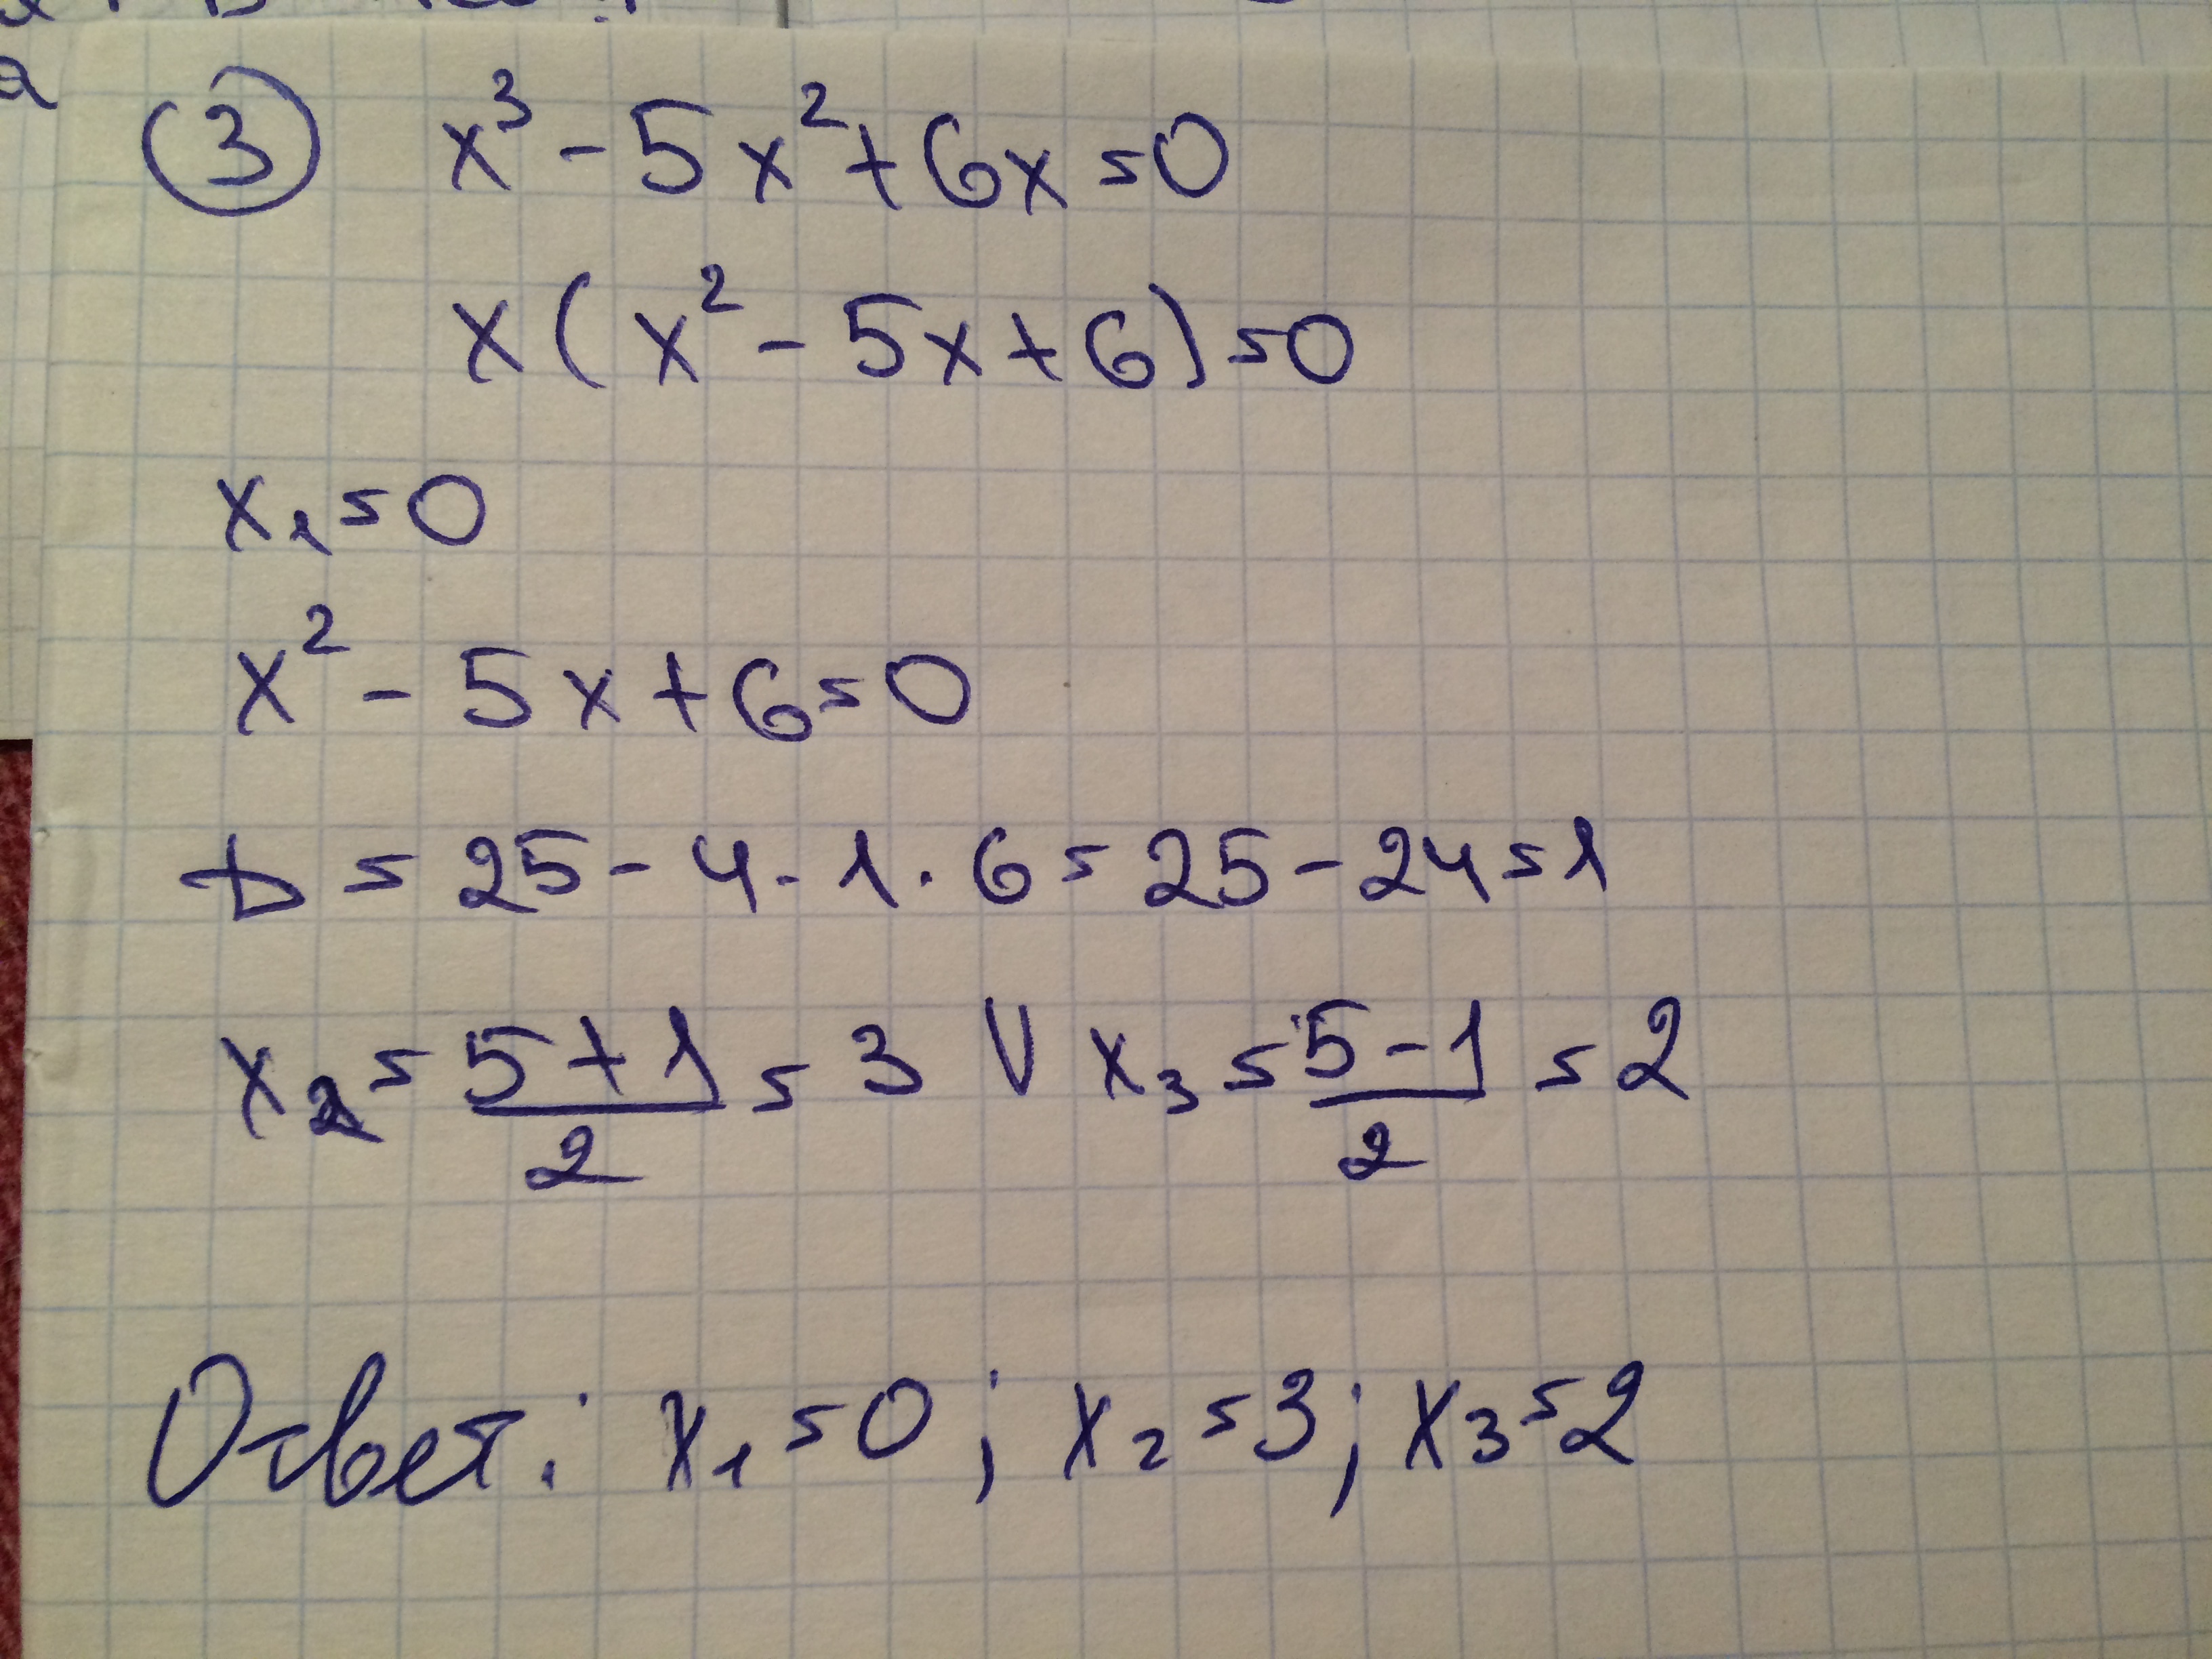 ③ x³ - 5x² + 6x = 0
x(x² - 5x + 6) = 0
x₁ = 0
x² - 5x + 6 = 0
D = 25 - 4 · 1 · 6 = 25 - 24 = 1
x₂ = (5 + 1)/2 = 3 V x₃ = (5 - 1)/2 = 2
Ответ: x₁ = 0; x₂ = 3; x₃ = 2